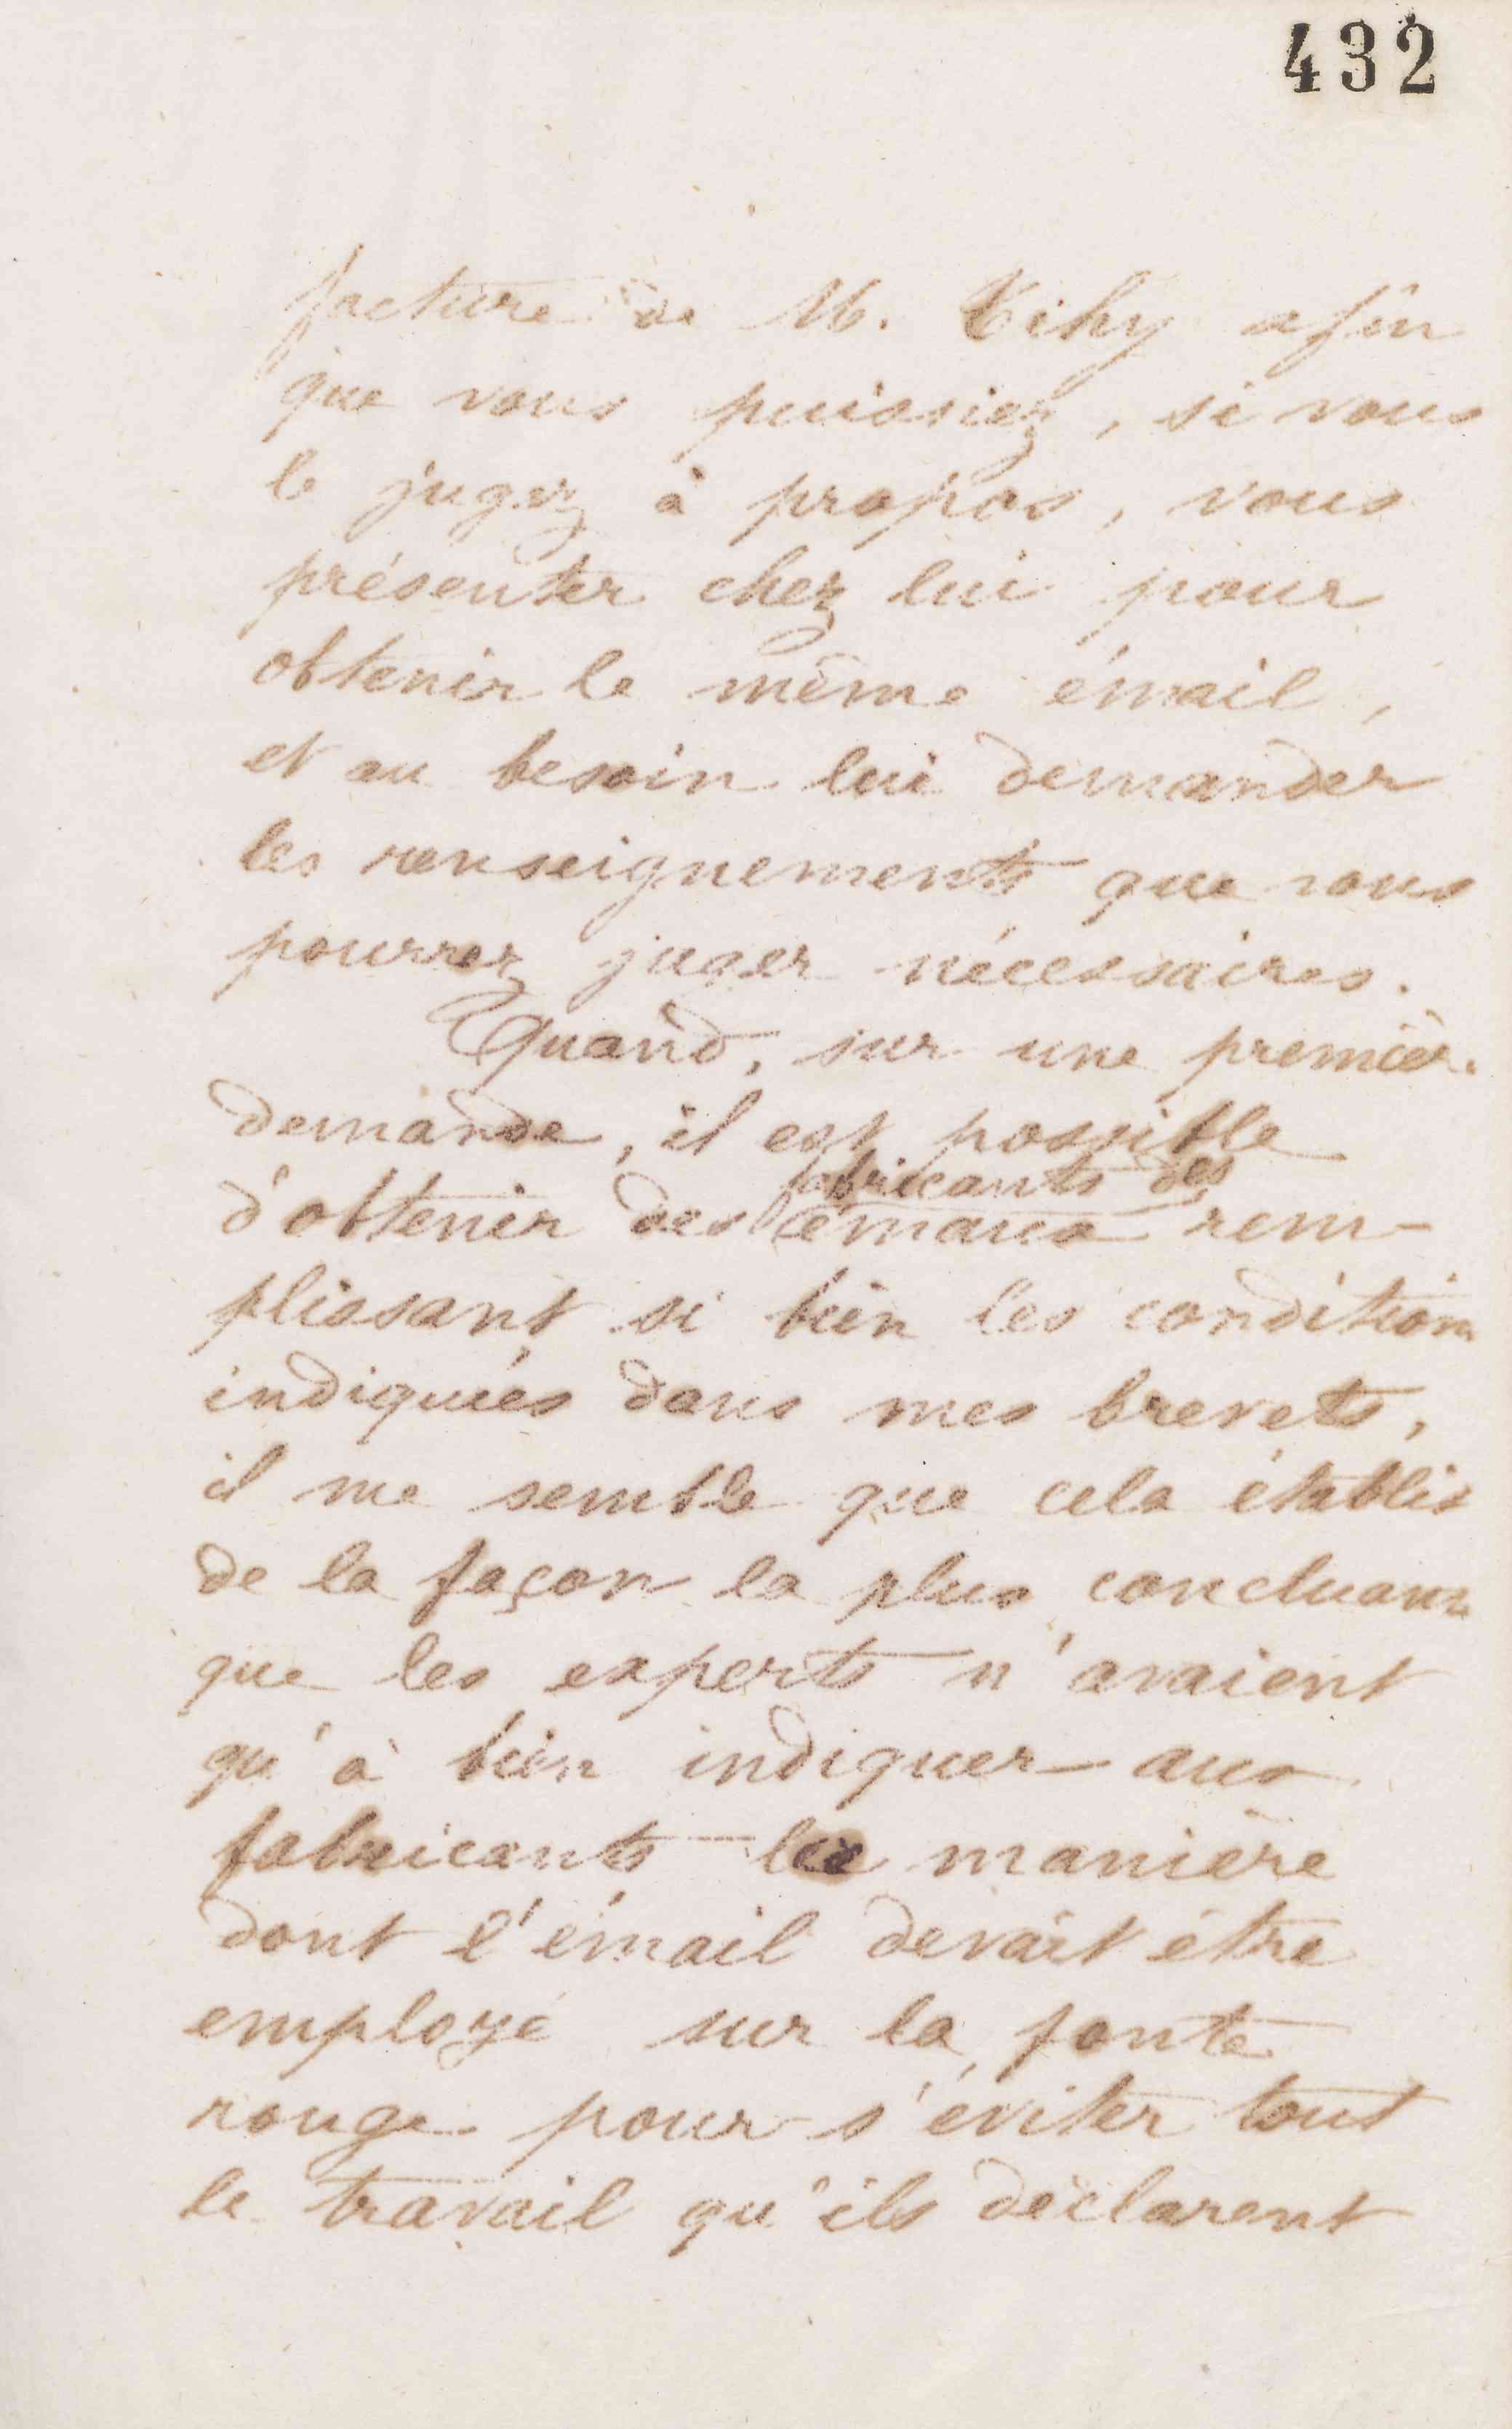 432
facture de M. Tihy afin
que vous puissiez, si vous
le jugez à propos, vous
présenter chez lui pour
obtenir le même émail,
et au besoin lui demander
les renseignements que vous
pourrez juger nécessaires.
Quand, sur une premièr.
demande, il est possible
fabricants des
d'obtenir des émaux rem-
plissant si bien les condition
indiquées dans mes brevets,
il me semble que cela établis
de la façon la plus concluan
que les experts n'avaient
qu'à bien indiquer aux
fabricants la manière
dont l'émail devait être
employé sur la fonte
rouge pour s'éviter tout
le travail qu'ils déclarent